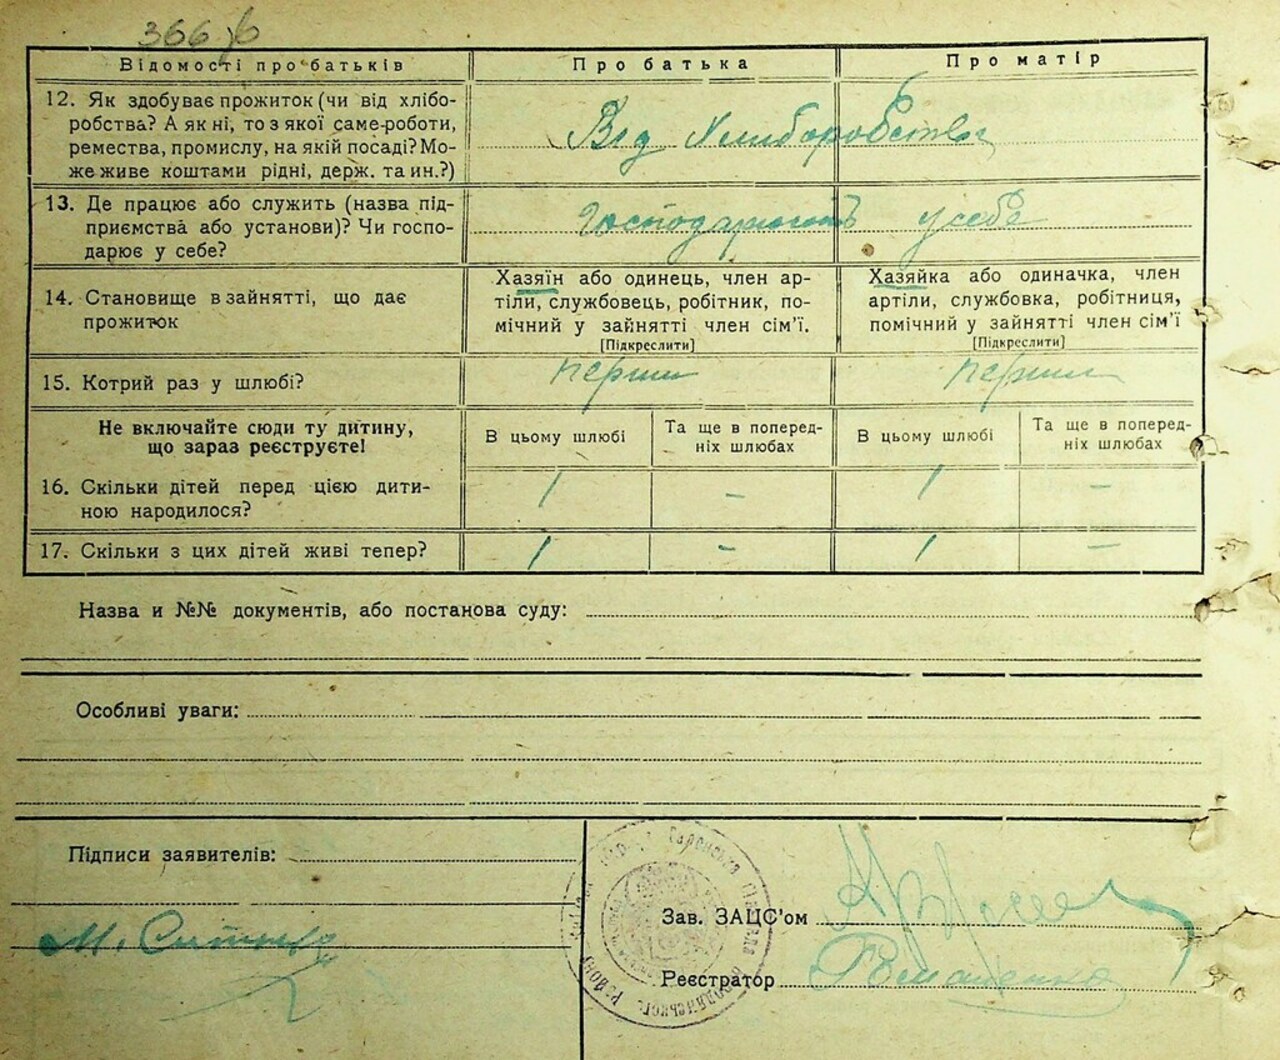 366
Відомості про батьків
Про батька
Про матір
12. Як здобуває прожиток (чи від хлібо-
робства? А як ні, то з якої саме-роботи,
ремества, промислу, на якій посаді? Мо-
же живе коштами рідні, держ. та ин.?)
Від Хлиборобства
13. Де працює або служить (назва під-
приємства або установи)? Чи госпо-
дарює у себе?
Господарюють у себе
14. Становище в зайнятті, що дає
прожиток
Хазяїн або одинець, член ар-
тіли, службовець, робітник, по-
мічний у зайнятті член сім'ї.
[Підкреслити]
Хазяйка або одиначка, член
артіли, службовка, робітниця,
помічний у зайнятті член сім'ї
[Підкреслити]
15. Котрий раз у шлюбі?
перший
перший
Не включайте сюди ту дитину,
що зараз реєструєте!
В цьому шлюбі
Та ще в поперед-
ніх шлюбах
В цьому шлюбі
Та ще в поперед-
ніх шлюбах
16. Скільки дітей перед цією дити-
ною народилося?
1 – 1 –
17. Скільки з цих дітей живі тепер?
1 – 1 –
Назва и №№ документів, або постанова суду:
Особливі уваги:
Підписи заявителів:
М.
Зав. ЗАЦС'ом
Реєстратор Романенко